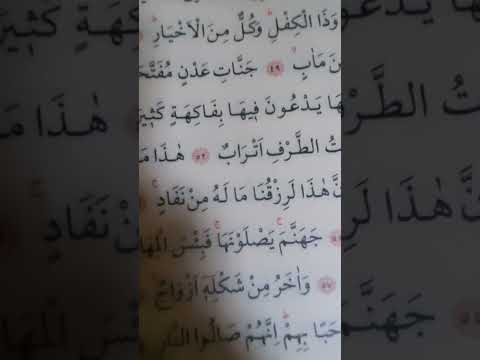 وَذَا الْكِفْلِۜ وَكُلٌّ مِنَ الْاَخْيَارِۜ
نَ مَاٰبٍۙ ٤٩ جَنَّاتِ عَدْنٍ مُفَتَّحَ
هَا يَدْعُونَ فٖيهَا بِفَاكِهَةٍ كَثٖيرَ
تُ الطَّرْفِ اَتْرَابٌ ٥٢ هٰذَا مَ
نَّ هٰذَا لَرِزْقُنَا مَا لَهُ مِنْ نَفَادٍۚ
جَهَنَّمَۚ يَصْلَوْنَهَاۚ فَبِئْسَ الْمِهَا
٥٧ وَاٰخَرُ مِنْ شَكْلِهٖٓ اَزْوَاجٌ
حَبًا بِهِمْۜ اِنَّهُمْ صَالُوا النَّارِ